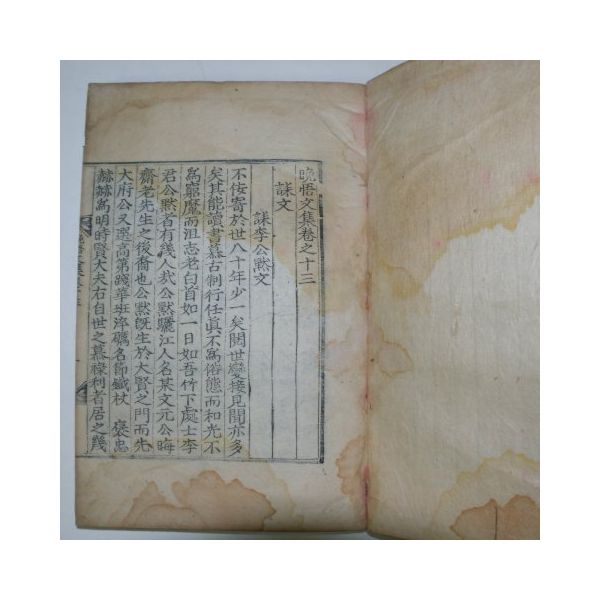 晩悟文集卷之十三
誄文
誄李公默文
不佞寄於世八十年少一矣閱世變接見聞亦多
矣其能讀書慕古制行任眞不爲俗態而和光不
爲窮魔而沮志老白首如一日如吾竹下處士李
君公默者有幾人哉公默驪江人名某文元公晦
齋老先生之後裔也公默旣生於大賢之門而先
大府公又選高第踐華班淬礪名節鐵杖 褒忠
赫赫爲明時賢大夫右自世之慕祿利者居之幾